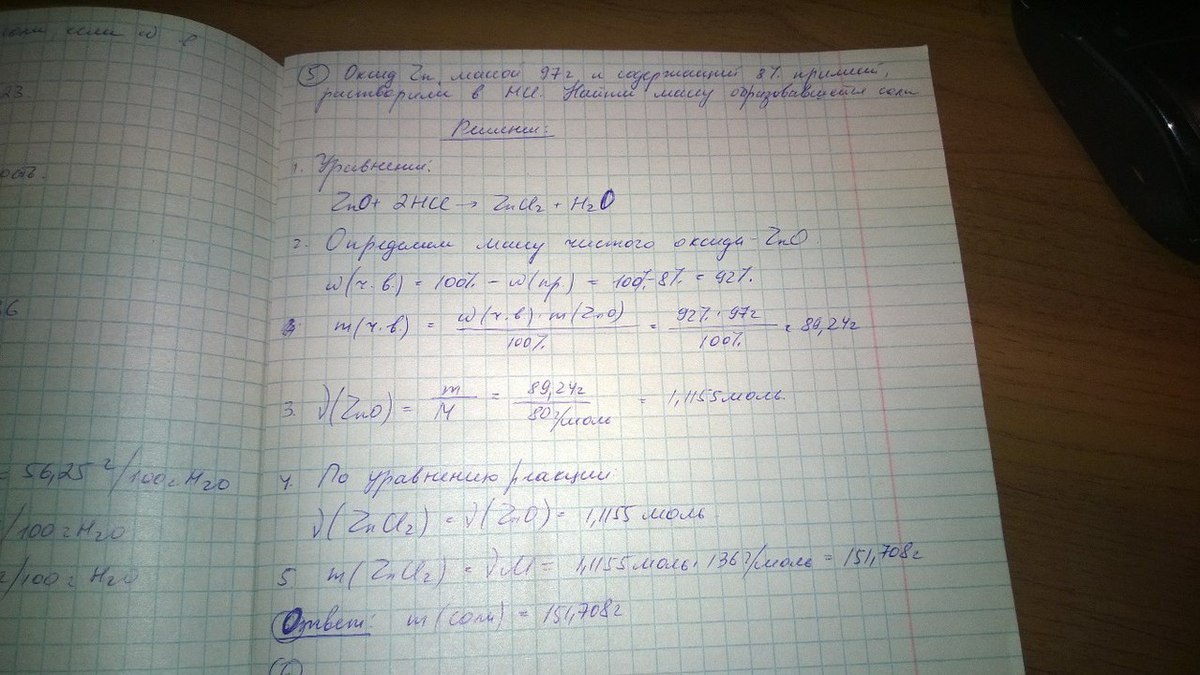 соли, если ω в
23
ость.
36
= 56,25 г/100г H2O
/100г H2O
г/100г H2O
5 Оксид Zn массой 97г и содержащий 8% примесей,
растворили в HCl. Найти массу образовавшейся соли
Решение:
1. Уравнение:
ZnO + 2HCl → ZnCl2 + H2O
2. Определяем массу чистого оксида ZnO
ω(ч.в.) = 100% - ω(пр) = 100%-8% = 92%.
m(ч.в) = ω(ч.в)·m(ZnO) / 100% = 92%·97г / 100% = 89,24г
3. ν(ZnO) = m / M = 89,24г / 80г/моль = 1,1155моль.
4. По уравнению реакции:
ν(ZnCl2) = ν(ZnO) = 1,1155 моль
5 m(ZnCl2) = νM = 1,1155моль·136г/моль = 151,708г
Ответ: m(соли) = 151,708г